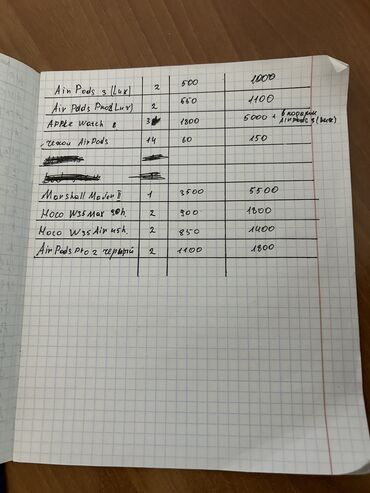 AirPods 3 (Lux) 2 500 1000
Air Pods Pro2(Lux) 2 550 1100
Apple Watch 8 3 1800 5000 + в подарок AirPods 3 (Lux)
чехол AirPods 14 60 150
Marshall Major II 1 3500 5500
Hoco W35 Max 90h. 2 900 1800
Hoco W35 Air 45h. 2 850 1400
Air Pods Pro 2 черный 2 1100 1800